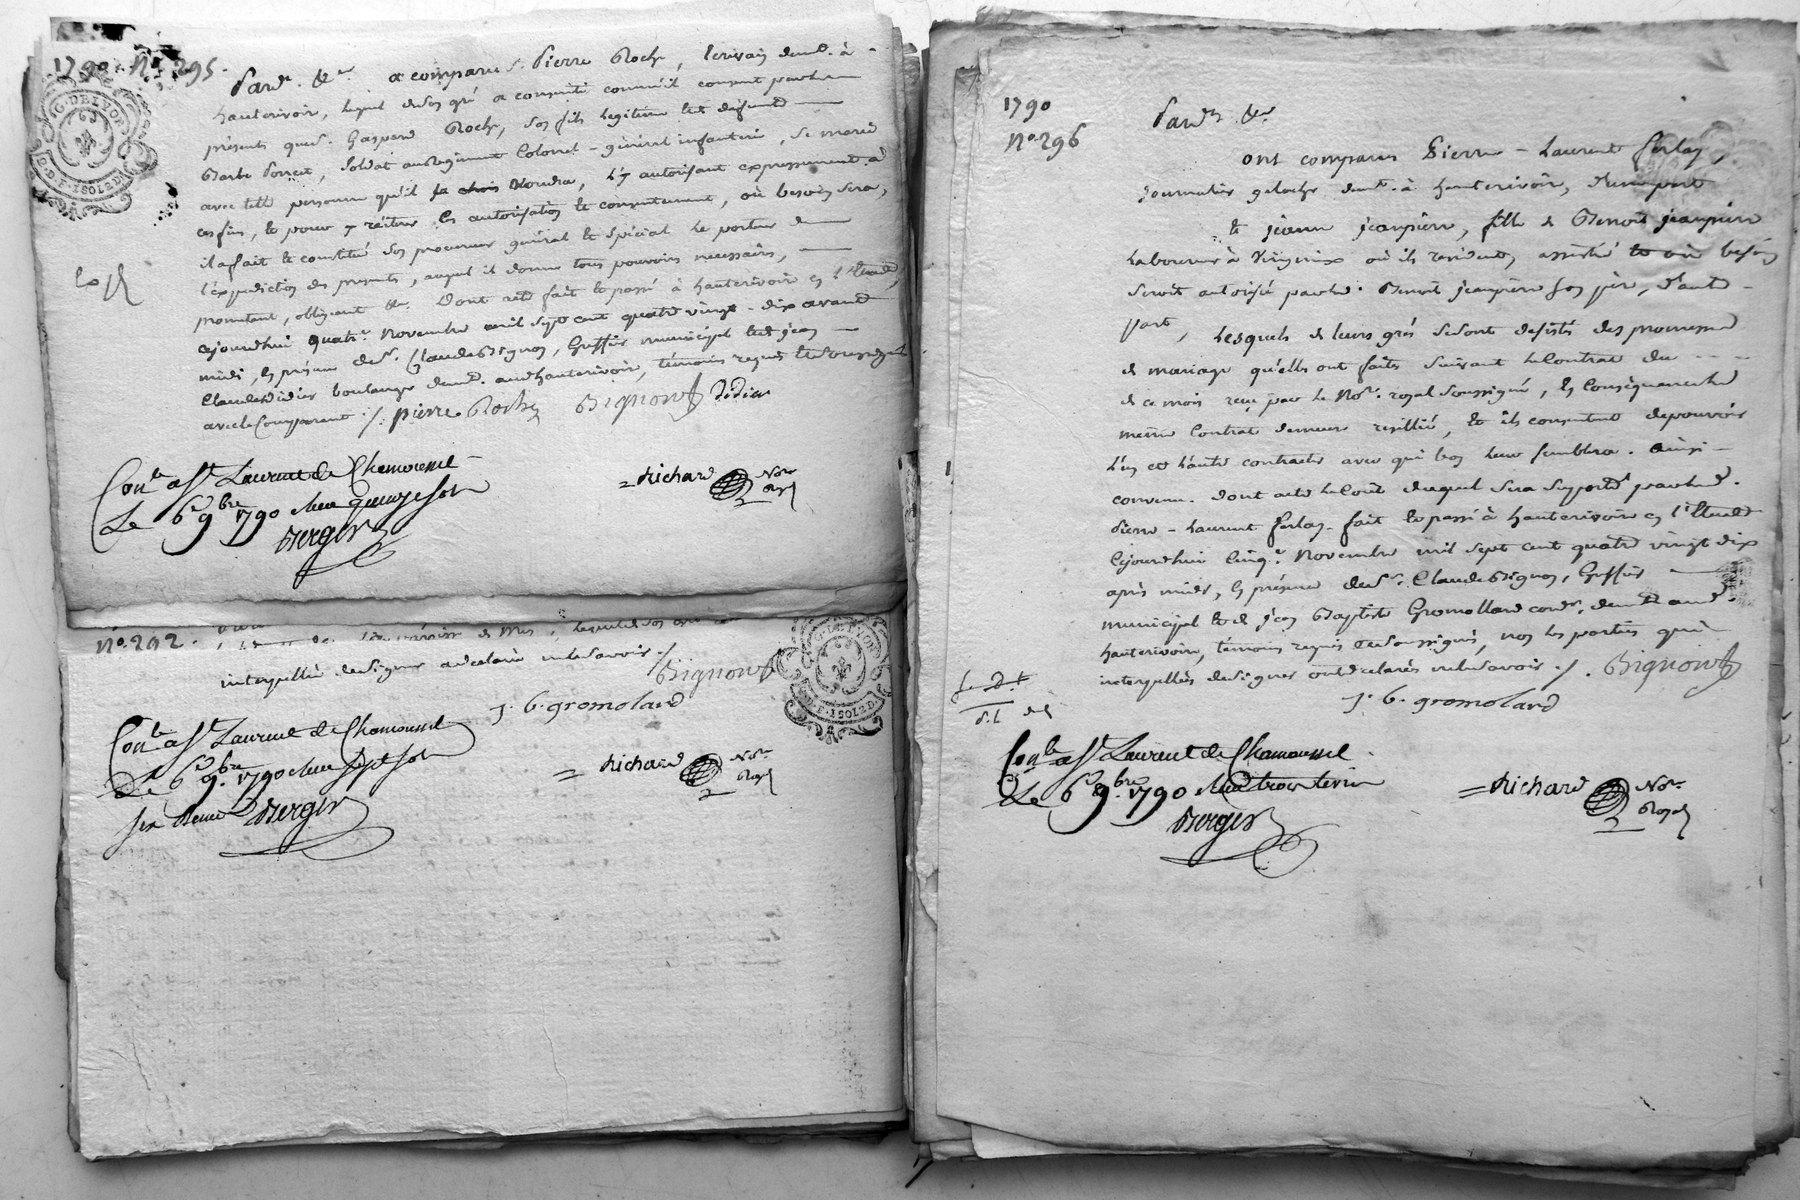 1790 N.º 295.
Pard.t &.a a comparu s.r Pierre Roche, Ecrivain demt. à
hauterivoir, lequel de son gré a consenti comme il consent par les
présents que s.r Gaspard Roche, son fils legitime & de defunte
Barbe Poncet, Soldat au Regiment Colonel-général infanterie, se marie
avec telle personne qu'il voudra, l'y autorisant expressement à
ces fins, & pour y réiterer les autorisation & consentement, où besoin sera,
il a fait & constitué son procureur général & spécial le porteur de
l'éxpedition des presents, auquel il donne tous pouvoirs necessaires,
promettant, obligeant &a. Dont acte fait & passé à hauterivoir en l'Etude,
cejourdhui quatr.e Novembre mil sept cent quatre vingt-dix avant
midi, en présence de s.r Claude Bignon, Greffier municipal & de jean
Claude Didier boulanger demt. aud. hauterivoir, témoins requis & soussignés
avec le Comparant ./. pierre Roche Bignon Didier
Con.le a S.t Laurent de Chamousset
Le 6e 9bre 1790 Reçu quinze sols
Berger
= Richard Nore
Royal
N.º 292.
interpellé de signer a declaré ne le savoir ./. Bignon
J. b. gromoland
Con.le a S.t Laurent de Chamousset
Le 6e 9bre 1790 Reçu sept sols
six deniers Berger
= Richard Nore
Royal
G. DE LYON
D. D. F. 1 SOL 2 D.
1790
N.º 296
Pard.t &.a
ont comparu Pierre-Laurent ferlay,
Journalier galocher demt. à hauterivoir, d'une part
& jeanne jeanpierre, fille de Benoît jeanpierre
Laboureur à Virigneux où ils résident, assistée & où besoin
seroit autorisée par led. Benoît jeanpierre son père, d'autre
part, Lesquels de leurs grés se sont désistés des promesses
de mariage qu'elles ont faits suivant le Contrat du
de ce mois reçu par le No.re royal soussigné, en conséquence led.
même Contrat demeure résillié, & ils consentent de pouvoir
l'un & l'autre contracter avec qui bon leur semblera. ainsi
convenu. dont acte le coût duquel sera supporté par led.
Pierre-Laurent ferlay. fait & passé à hauterivoir en l'Etude
Cejourdhui cinq.e Novembre mil sept cent quatre vingt dix
après midi, en présence de s.r Claude Bignon, Greffier
municipal & de jean Baptiste Gromolland cord.r demt. aud.
hauterivoir, témoins requis & soussignés, non les parties qui
interpellées de signer ont declarés ne le savoir ./. Bignon
J. b. gromoland
Con.le a S.t Laurent de Chamousset
Le 6e 9bre 1790 Reçu
Berger
= Richard Nore
Royal